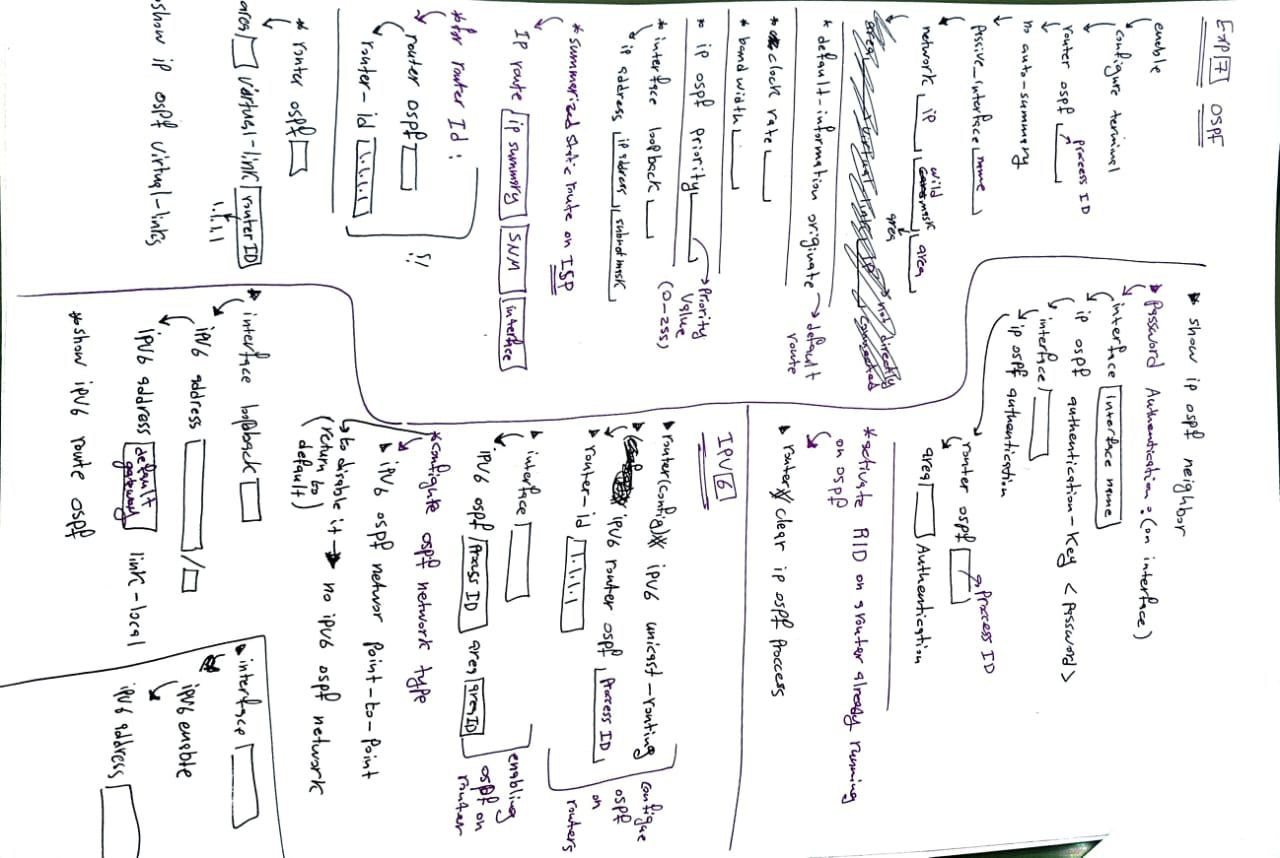 Exp 7 OSPF
enable
configure terminal
router ospf
process ID
no auto-summary
Passive_interface name
network ip wild mask area
area
* default-information originate → default route
* clock rate
* bandwidth
* ip ospf priority
→ Priority Value (0-255)
* interface loopback
ip address ip address subnetmask
* summarized static route on ISP
IP route ip summary SNM interface
* for router Id:
router ospf
router-id 1.1.1.1
* router ospf
area virtual-link router ID
1.1.1.1
show ip ospf virtual-links
show ip ospf neighbor
Password Authentication: (on interface)
interface Interface name
ip ospf authentication-Key <Password>
interface
ip ospf authentication
router ospf
→ Process ID
area Authentication
* activate RID on a router already running
on ospf
router clear ip ospf Proccess
IPV6
router(config) ipv6 unicast-routing
ipv6 router ospf Process ID
router-id 1.1.1.1
configure ospf on routers
interface
IPV6 ospf Process ID area area ID
enabling ospf on router
* configure ospf network type
ipv6 ospf networ point-to-point
to disable it → no ipv6 ospf network
(return to default)
* interface loopback
ipv6 address /
ipv6 address default gateway link-local
* show ipv6 route ospf
interface
ipv6 enable
ipv6 address